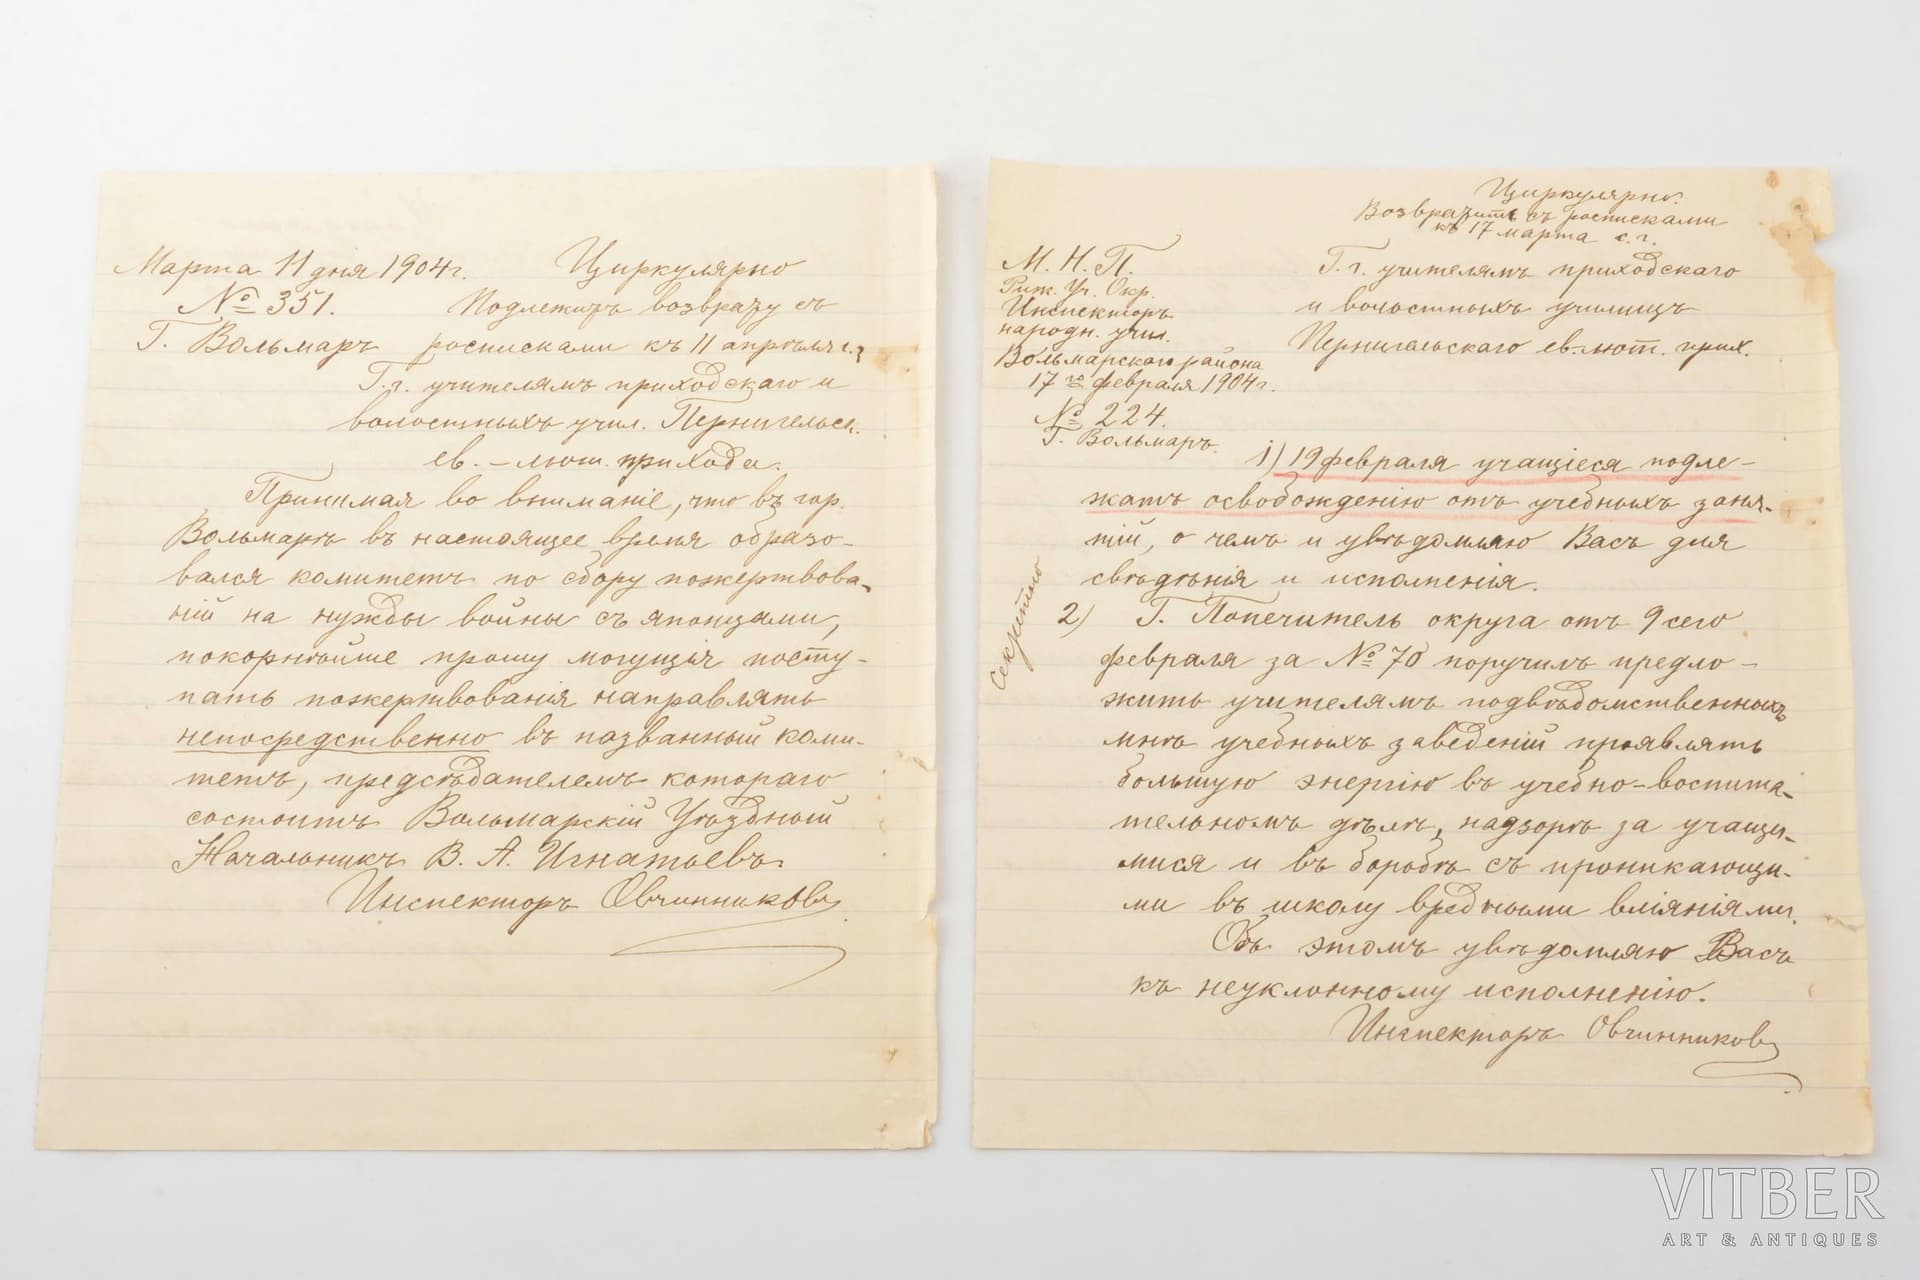 Марта 11 дня 1904 г. Циркулярно
№ 351. Подлежитъ возврату съ
Г. Вольмаръ росписками къ 11 апрѣля с.г.
Г.г. учителямъ приходскаго и
волостныхъ учил. Пернигельск.
ев.-лют. прихода.
Принимая во вниманіе, что въ гор.
Вольмарѣ въ настоящее время образо-
вался комитетъ по сбору пожертвова-
ній на нужды войны съ японцами,
покорнѣйше прошу могущія посту-
пать пожертвованія направлять
непосредственно въ названный коми-
тетъ, предсѣдателемъ котораго
состоитъ Вольмарскій Уѣздный
Начальникъ В. А. Игнатьевъ.
Инспекторъ Овчинниковъ
Циркулярно.
Возвратить съ росписками
къ 17 марта с. г.
М. Н. П.
Риж. Уч. Окр.
Инспекторъ
народн. учил.
Вольмарскаго района
17го февраля 1904 г.
№ 224.
Г. Вольмаръ.
Г. г. учителямъ приходскаго
и волостныхъ училищъ
Пернигельскаго ев.-лют. прих.
1) 19 февраля учащіеся подле-
жатъ освобожденію отъ учебныхъ заня-
тій, о чемъ и увѣдомляю Васъ для
свѣдѣнія и исполненія.
Секретно
2) Г. Попечитель округа отъ 9 сего
февраля за № 70 поручилъ предло-
жить учителямъ подвѣдомственныхъ
мнѣ учебныхъ заведеній проявлять
большую энергію въ учебно-воспита-
тельномъ дѣлѣ, надзорѣ за учащи-
мися и въ борьбѣ съ проникающи-
ми въ школу вредными вліяніями.
Объ этомъ увѣдомляю Васъ
къ неуклонному исполненію.
Инспекторъ Овчинниковъ
VITBER
ART & ANTIQUES